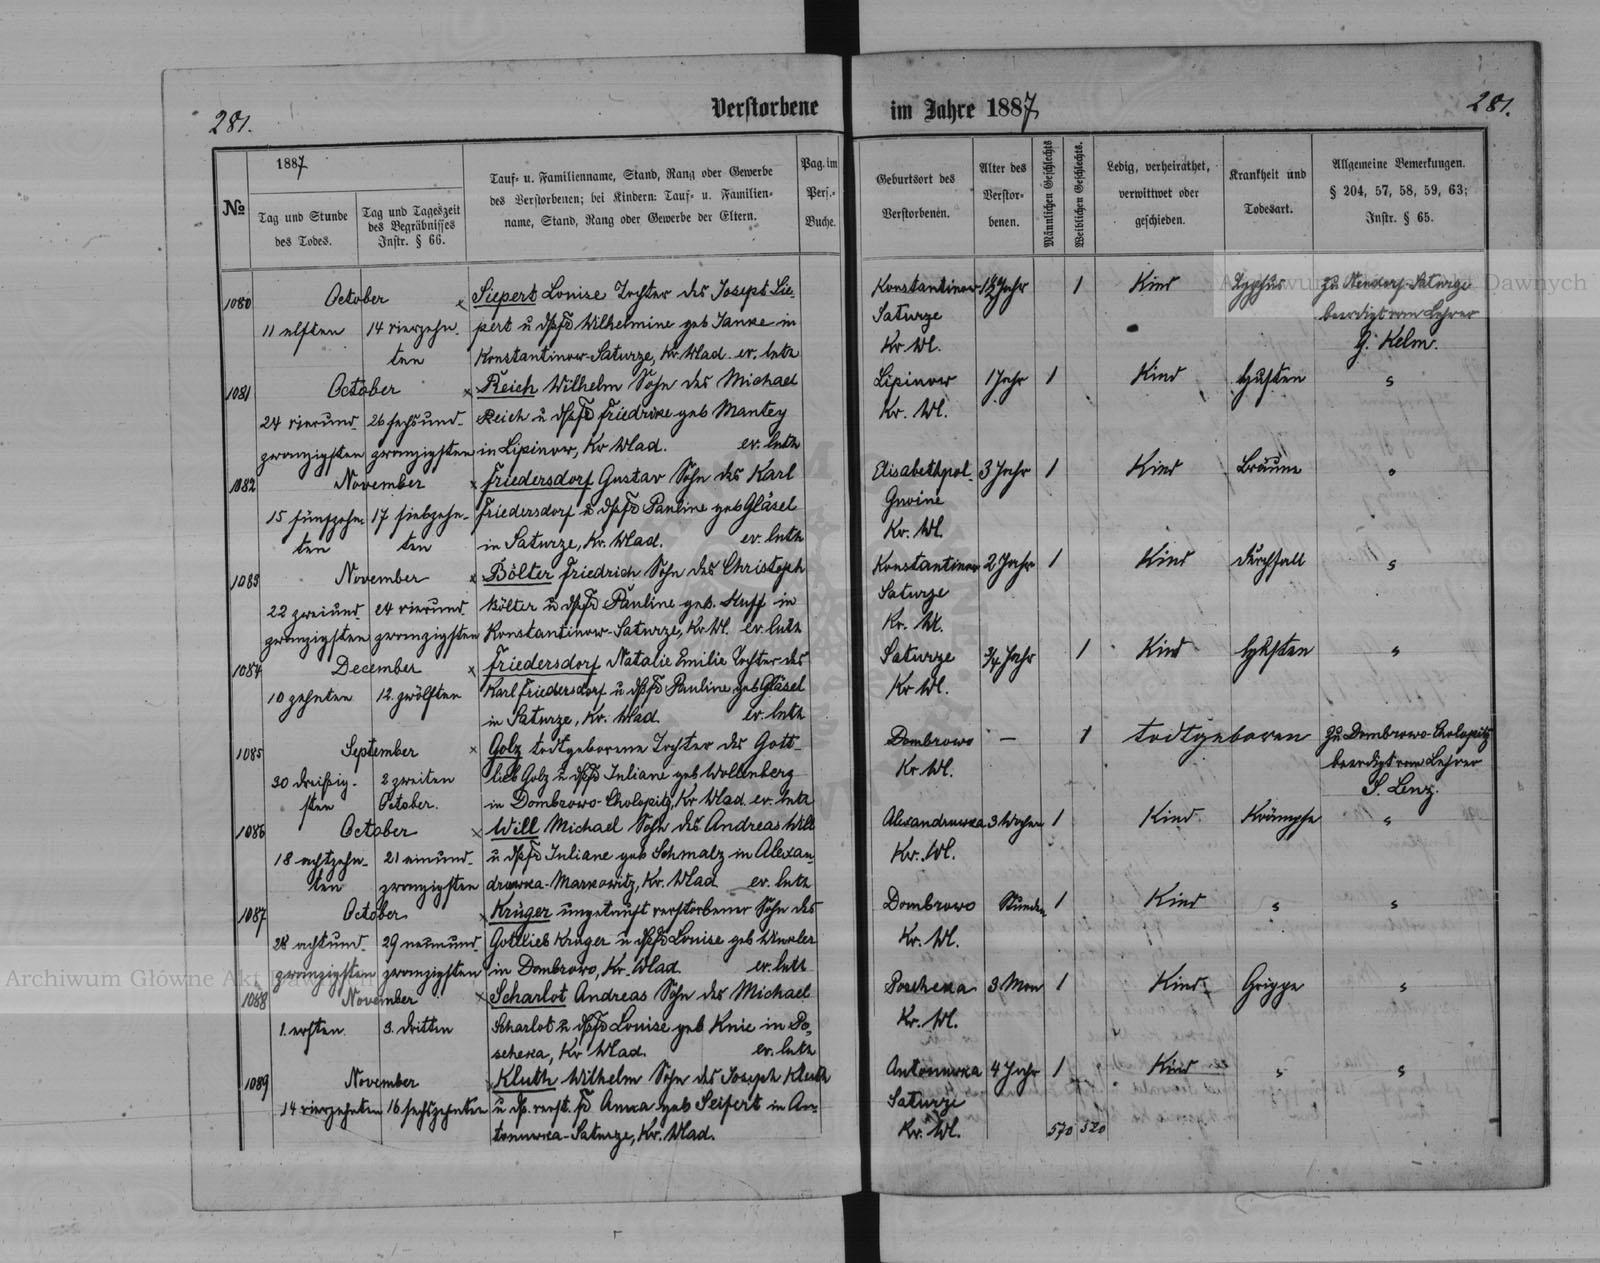 281.
Verstorbene im Jahre 1887
281.
№
1887
Tag und Stunde
des Todes.
Tag und Tageszeit
des Begräbnisses
Instr. § 66.
Tauf- u. Familienname, Stand, Rang oder Gewerbe
des Verstorbenen; bei Kindern: Tauf- u. Familien-
name, Stand, Rang oder Gewerbe der Eltern.
Pag. im
Pers.-
Buche.
Geburtsort des
Verstorbenen.
Alter des
Verstor-
benen.
Männlichen Geschlechts
Weiblichen Geschlechts.
Ledig, verheirathet,
verwittwet oder
geschieden.
Krankheit und
Todesart.
Allgemeine Bemerkungen.
§ 204, 57, 58, 59, 63;
Instr. § 65.
1080
October
11 elften
14 vierzehn-
ten
Siepert Louise Tochter des Joseph Sie-
pert u Wilhelmine geb Janke in
Konstantinow-Saturze, Kr. Wlad. ev. luth
Konstantinow
Saturze
Kr. Wl.
1½ Jahr
1
Kind
Typhus
zu Neudorf-Saturze
beerdigt vom Lehrer
G. Kelm.
1081
October
24 vierund-
zwanzigsten
26 sechsund-
zwanzigsten
Reich Wilhelm Sohn des Michael
Reich u Friedrike geb Mantey
in Lipinow, Kr Wlad. ev. luth
Lipinow
Kr. Wl.
1 Jahr
1
Kind
Husten
"
1082
November
15 fünfzehn-
ten
17 siebzehn-
ten
Friedersdorf Gustav Sohn des Karl
Friedersdorf u Pauline geb Gläsel
in Saturze, Kr. Wlad. ev. luth
Elisabethpol
Kr. Wl.
3 Jahr
1
Kind
Bräune
"
1083
November
22 zweiund-
zwanzigsten
24 vierund-
zwanzigsten
Bölter Friedrich Sohn des Christoph
Bölter u Pauline geb. in
Konstantinow-Saturze, Kr Wl. ev. luth
Konstantinow
Saturze
Kr. Wl.
2 Jahr
1
Kind
Durchfall
"
1084
December
10 zehnten
12. zwölften
Friedersdorf Natalie Emilie Tochter des
Karl Friedersdorf u Pauline geb Gläsel
in Saturze, Kr. Wlad. ev. luth
Saturze
Kr Wl.
¾ Jahr
1
Kind
Husten
"
1085
September
30 dreißig-
sten
2 zweiten
October.
Golz todtgeborene Tochter des Gott-
lieb Golz u Juliane geb Wollenberg
in Dombrowo-Cholopitz, Kr Wlad. ev. luth
Dombrowo
Kr Wl.
—
1
todtgeboren
zu Dombrowo-Cholopitz
beerdigt vom Lehrer
S. Lenz.
1086
October
18 achtzehn-
ten
21 einund-
zwanzigsten
Will Michael Sohn des Andreas Will
u Juliane geb Schmalz in Alexan-
drowka-Markowitz, Kr. Wlad. ev. luth
Alexandrowka
Kr. Wl.
3 Wochen
1
Kind
Krämpfe
"
1087
October
28 achtund-
zwanzigsten
29 neunund-
zwanzigsten
Krüger ungetauft verstorbener Sohn des
Gottlieb Krüger u Louise geb Winkler
in Dombrowo, Kr. Wlad. ev. luth
Dombrowo
Kr. Wl.
Stunden
1
Kind
"
"
1088
November
1. ersten
3. dritten
Scharlot Andreas Sohn des Michael
Scharlot u Louise geb Knie in Po-
scheka, Kr Wlad. ev. luth
Poscheka
Kr. Wl.
3 Mon
1
Kind
Grippe
"
1089
November
14 vierzehnten
16 sechszehnten
Kluth Wilhelm Sohn des Joseph Kluth
u verst. Anna geb Seifert in An-
tonuwka-Saturze, Kr. Wlad.
Antonuwka
Saturze
Kr. Wl.
4 Jahr
1
Kind
"
"
570 520
Archiwum Główne Akt Dawnych
Archiwum Główne Akt Dawnych